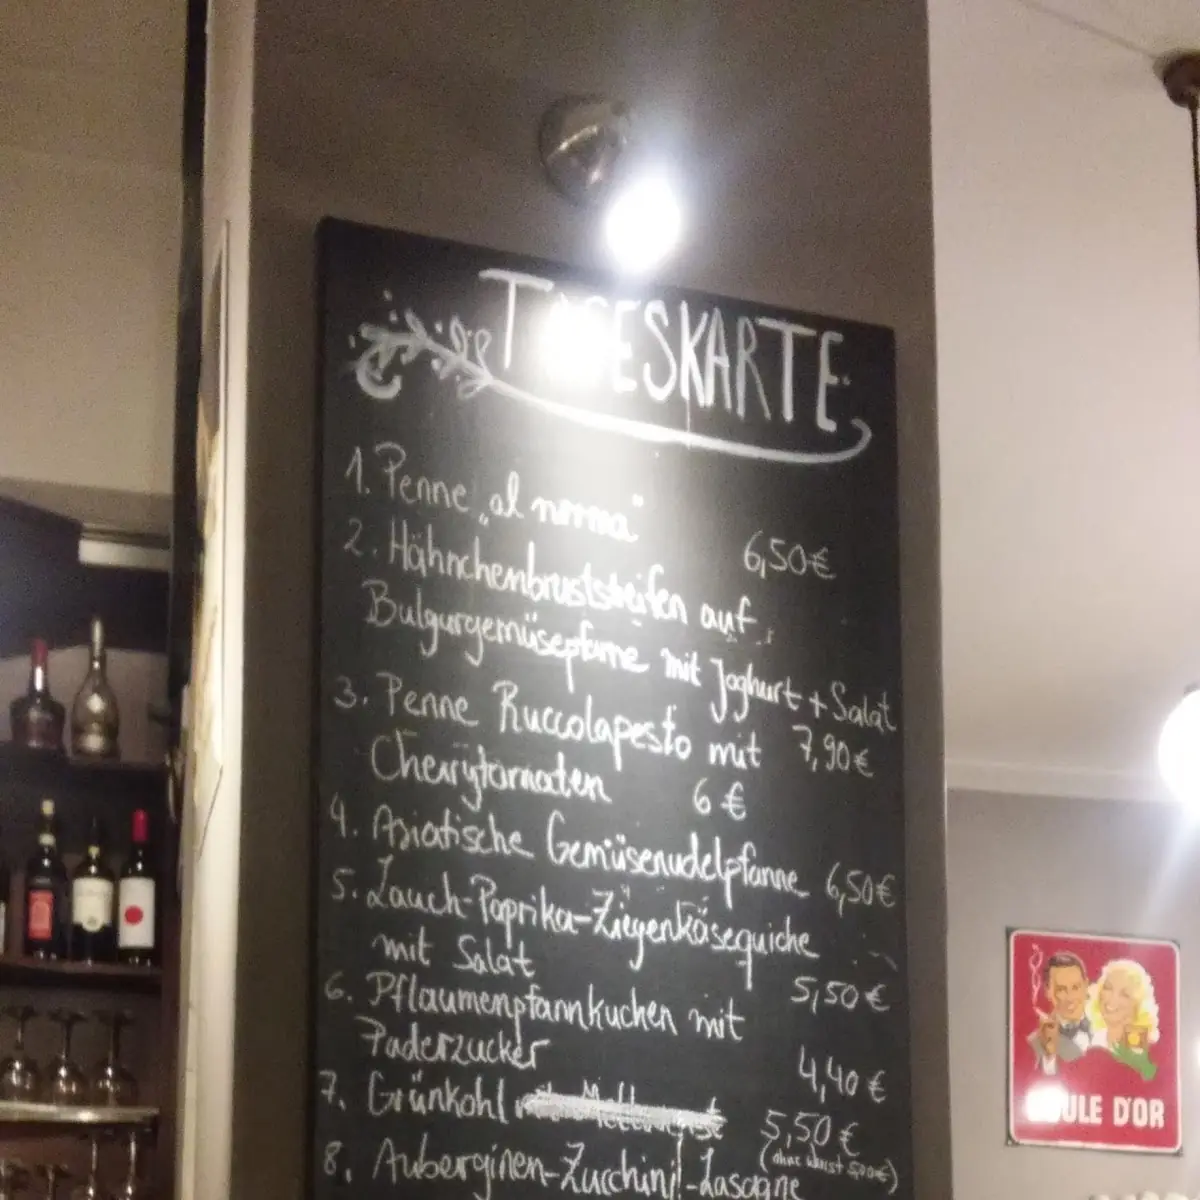 TAGESKARTE
1. Penne „al norma"
6,50€
2. Hähnchenbruststreifen auf
Bulgurgemüsepfanne mit Joghurt + Salat
7,90€
3. Penne Ruccolapesto mit
Cherrytomaten 6 €
4. Asiatische Gemüsenudelpfanne 6,50€
5. Lauch-Paprika-Ziegenkäsequiche
mit Salat
5,50€
6. Pflaumenpfannkuchen mit
Puderzucker
4,40€
7. Grünkohl 5,50€
(ohne Wurst 5,00€)
8. Auberginen-Zucchini-Lasagne
D'OR